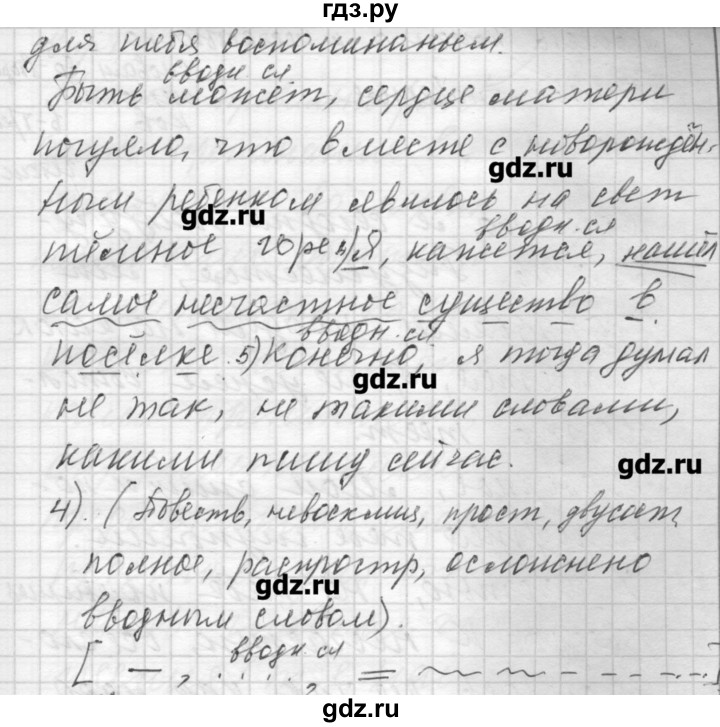 гдз.ру
для тебя воспоминаньем.
вводн. сл.
Быть может, сердце матери
почуяло, что вместе с новорождён-
gdz.ru
ным ребенком явилось на свет
gdz.ru
вводн. сл
тёмное горе 4) Я, кажется, нашёл
самое несчастное существо в
вводн. сл
посёлке. 5) Конечно, я тогда думал
gdz.ru
не так, не такими словами,
какими пишу сейчас.
gdz.ru
4). (Повеств, невосклиц, прост, двусост,
полное, распростр, осложнено
gdz.ru
вводным словом).
вводн. сл
gdz.ru